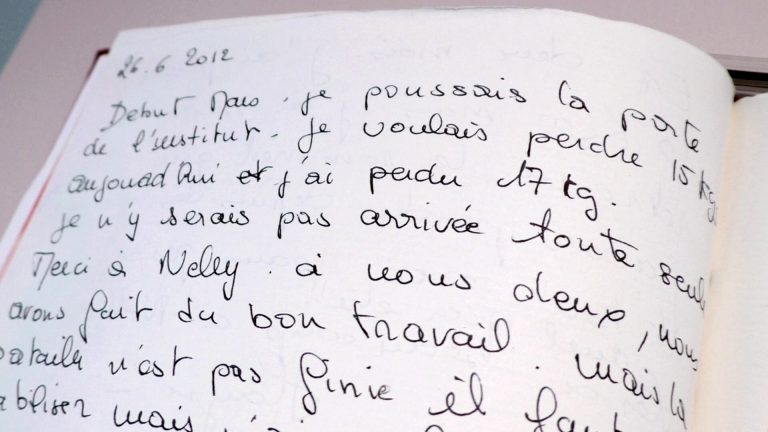 26.6 2012
Début Mars. je poussais la porte
de l'institut. Je voulais perdre 15 kgs
aujourd'hui et j'ai perdu 17 kg.
Je n'y serais pas arrivée toute seule
Merci à Nelly. à nous deux, nous
avons fait du bon travail. mais la
n'est pas finie il faut
mais